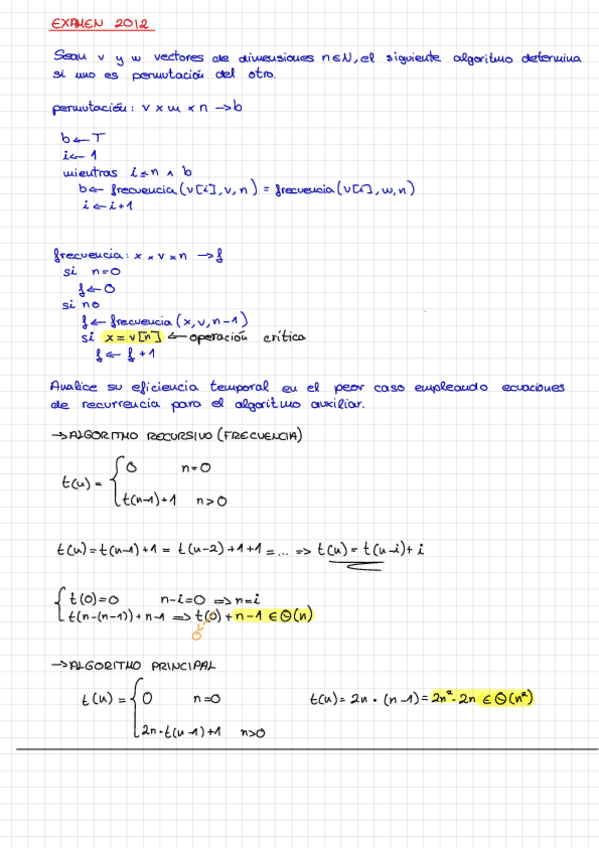 EXAMEN 2012
Sean v y w vectores de dimensiones n∈N, el siguiente algoritmo determina
si uno es permutación del otro.
permutación: v x w x n → b
b ← T
i ← 1
mientras i ≤ n ∧ b
b ← frecuencia (v[i], v, n) = frecuencia (v[i], w, n)
i ← i+1
frecuencia: x x v x n → f
si n=0
f ← 0
si no
f ← frecuencia (x, v, n-1)
si x = v[n] ← operación crítica
f ← f + 1
Analice su eficiencia temporal en el peor caso empleando ecuaciones
de recurrencia para el algoritmo auxiliar.
→ ALGORITMO RECURSIVO (FRECUENCIA)
t(n) = { 0 n=0
t(n-1)+1 n>0
t(n) = t(n-1)+1 = t(n-2)+1+1 = ... => t(n) = t(n-i)+i
{ t(0)=0 n-i=0 => n=i
t(n-(n-1))+n-1 => t(0)+n-1 ∈ Θ(n)
0
→ ALGORITMO PRINCIPAL
t(n) = { 0 n=0 t(n) = 2n · (n-1) = 2n²-2n ∈ Θ(n²)
2n·t(n-1)+1 n>0